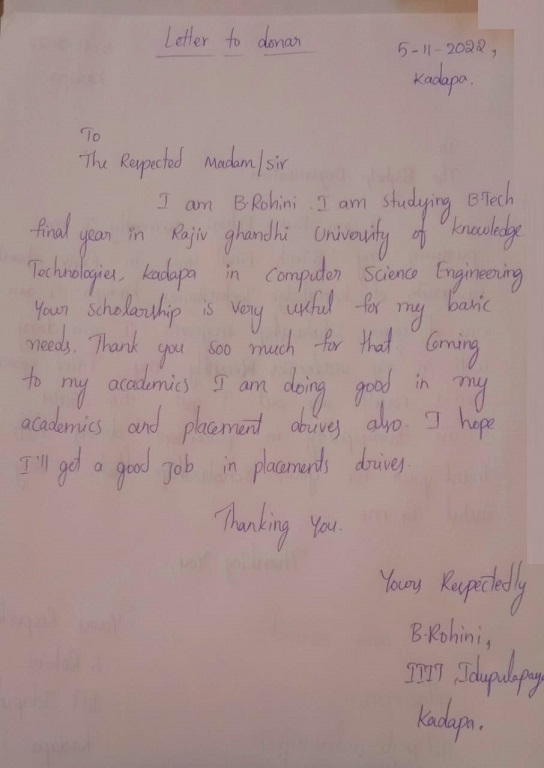 Letter to donar
5-11-2022,
Kadapa.
To
The Respected Madam/sir
I am B.Rohini. I am studying B.Tech
final year in Rajiv ghandhi University of knowledge
Technologies, kadapa in Computer Science Engineering
Your scholarship is very useful for my basic
needs. Thank you soo much for that Coming
to my academics I am doing good in my
academics and placement drives also. I hope
I'll get a good job in placements drives.
Thanking You.
Yours Respectedly
B.Rohini,
IIIT, Idupulapaya
Kadapa.